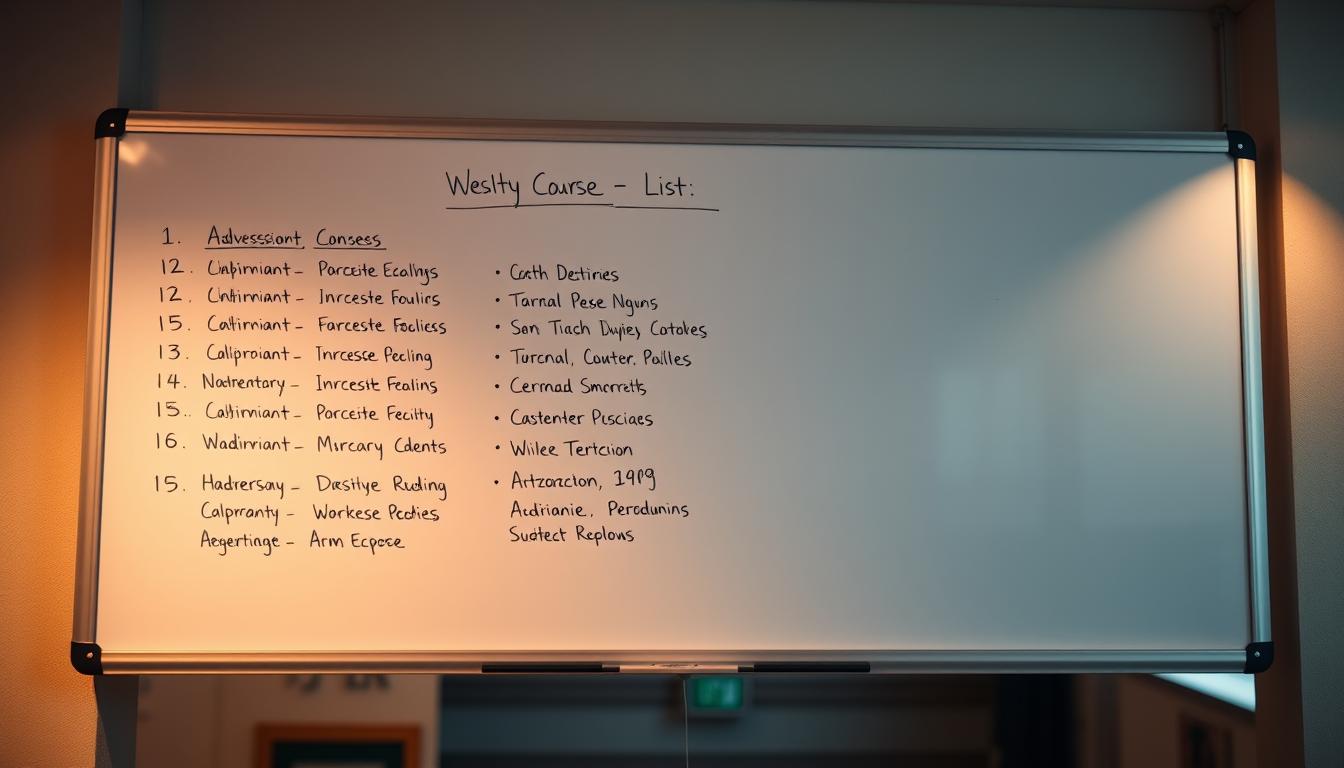 Weslty Course - List:
1. Advessiont, Consess
12. Unhpimiant - Parceite Ecallngs
12. Unhimiant - Inrceste Foulirs
15. Caltimiant - Farceste Focliess
13. Caliproiant - Inrcesse Pecling
14. Nodrentary - Inrcesit Fealins
15.. Caltimiant - Porceite Fecilty
16. Wadinviant - Mircary Cdents
15. Hadrersay - Dasitye Rudding
Calprranty - Workese Pcdies
Aegertinge - Arm Ecpoce
• Cocth Destiries
• Tarnal Pese Nguns
• Son Tiach Dujiey Catokes
• Turcnal, Couter. Pallles
• Cermad Smcrretts
• Castenter Pisciaes
• Wiilee Tertciion
• Artzoraclon, 1919
Actriranie, Perodunins
Sustect Replows